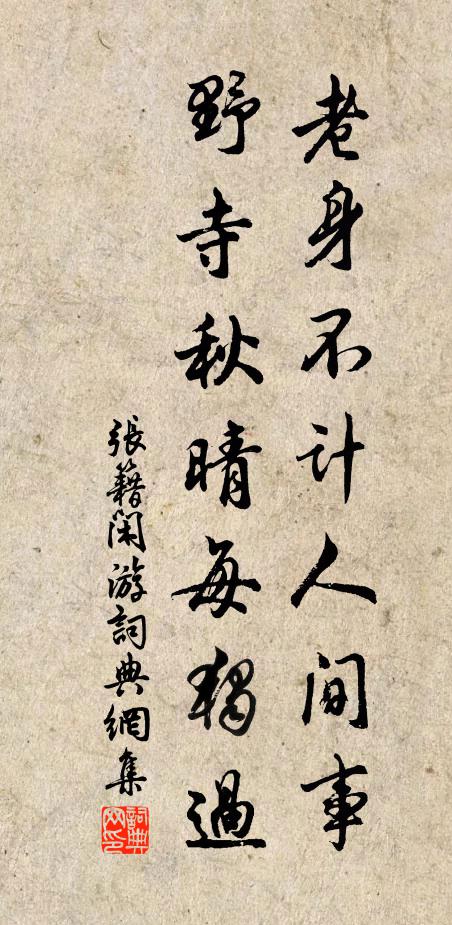 老身不计人间事
野寺秋晴每独過
張籍闲游詞典網集
詞典
网印